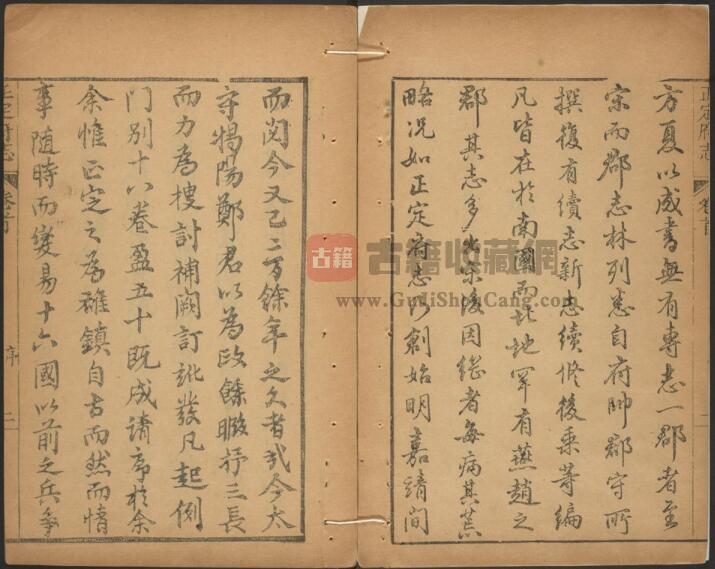 正定府志
卷首
方夏以成書無有專志一郡者至
宋而郡志林列悉自府帥郡守所
撰復有續志新志續修後乘等編
凡皆在於南國而北地罕有燕趙之
郡其志多出宋後因繼者每病其荒
略況如正定府志以創始明嘉靖間
而閱今又已二百餘年之久者哉今太
守揭陽鄭君以為政餘暇抒三長
而力為搜討補闕訂訛發凡起例
門別十八卷盈五十既成請序於余
余惟正定之為雄鎮自古而然而情
事隨時而變易十六國以前之兵爭
正定府志
卷首
序
二
古籍
古籍收藏網
www.GuJiShouCang.com